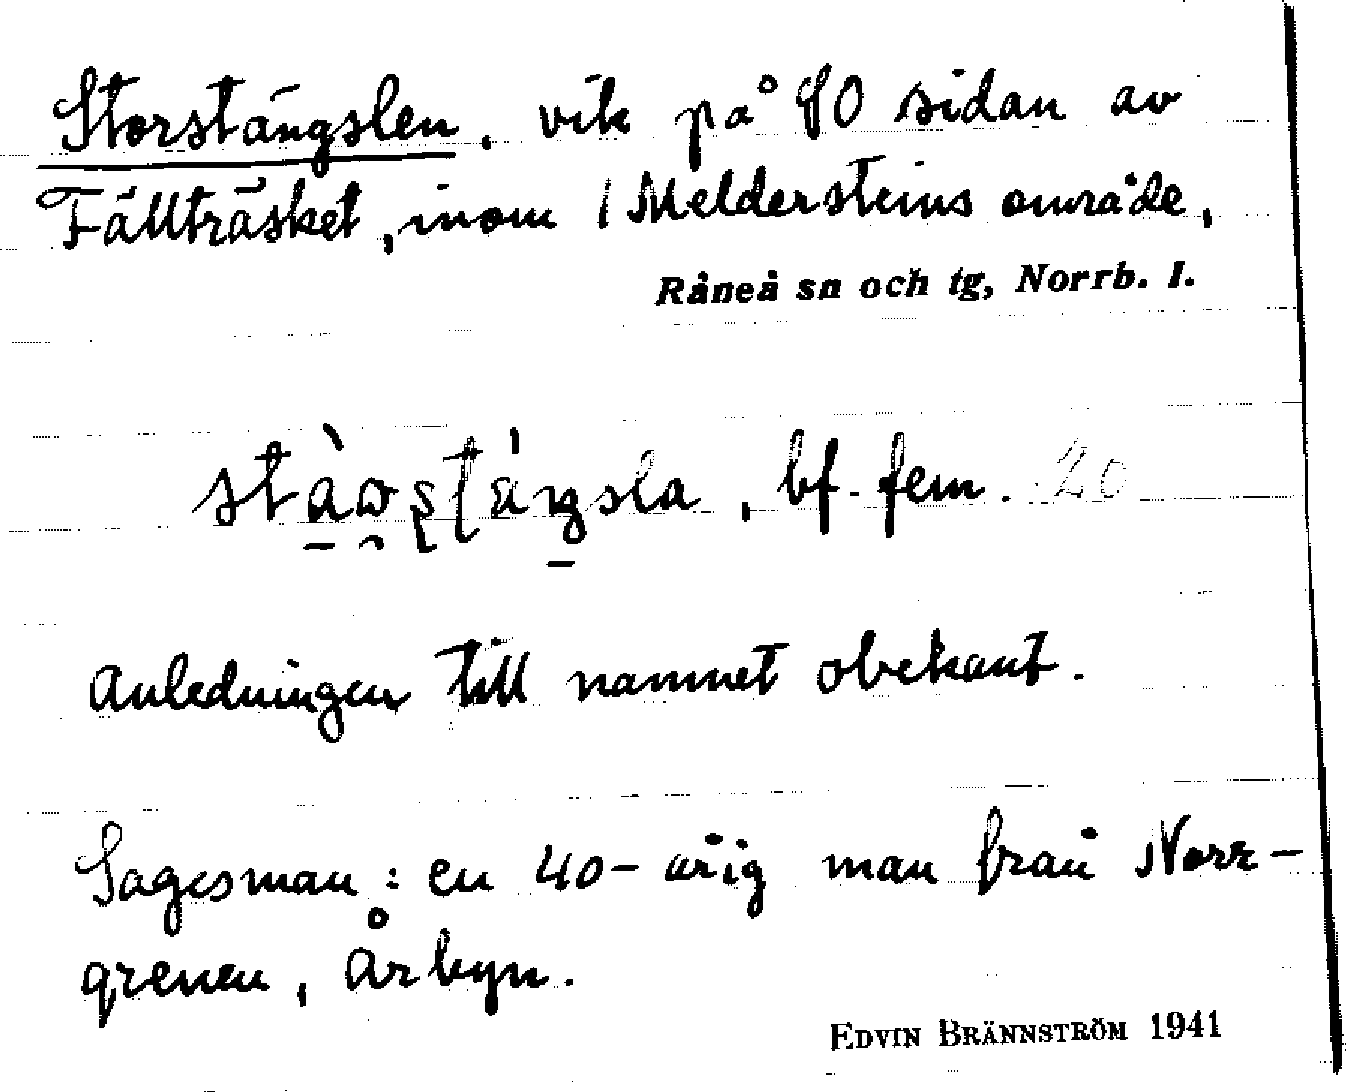 Storstängslen, vik på SO sidan av
Fällträsket, inom / Meldersteins område,
Råneå sn och tg, Norrb. l.
bf. fem. 20
Anledningen till namnet obekant.
Sagesman: en 40-årig man från Norr-
grenen, Årbyn.
EDVIN BRÄNNSTRÖM 1941